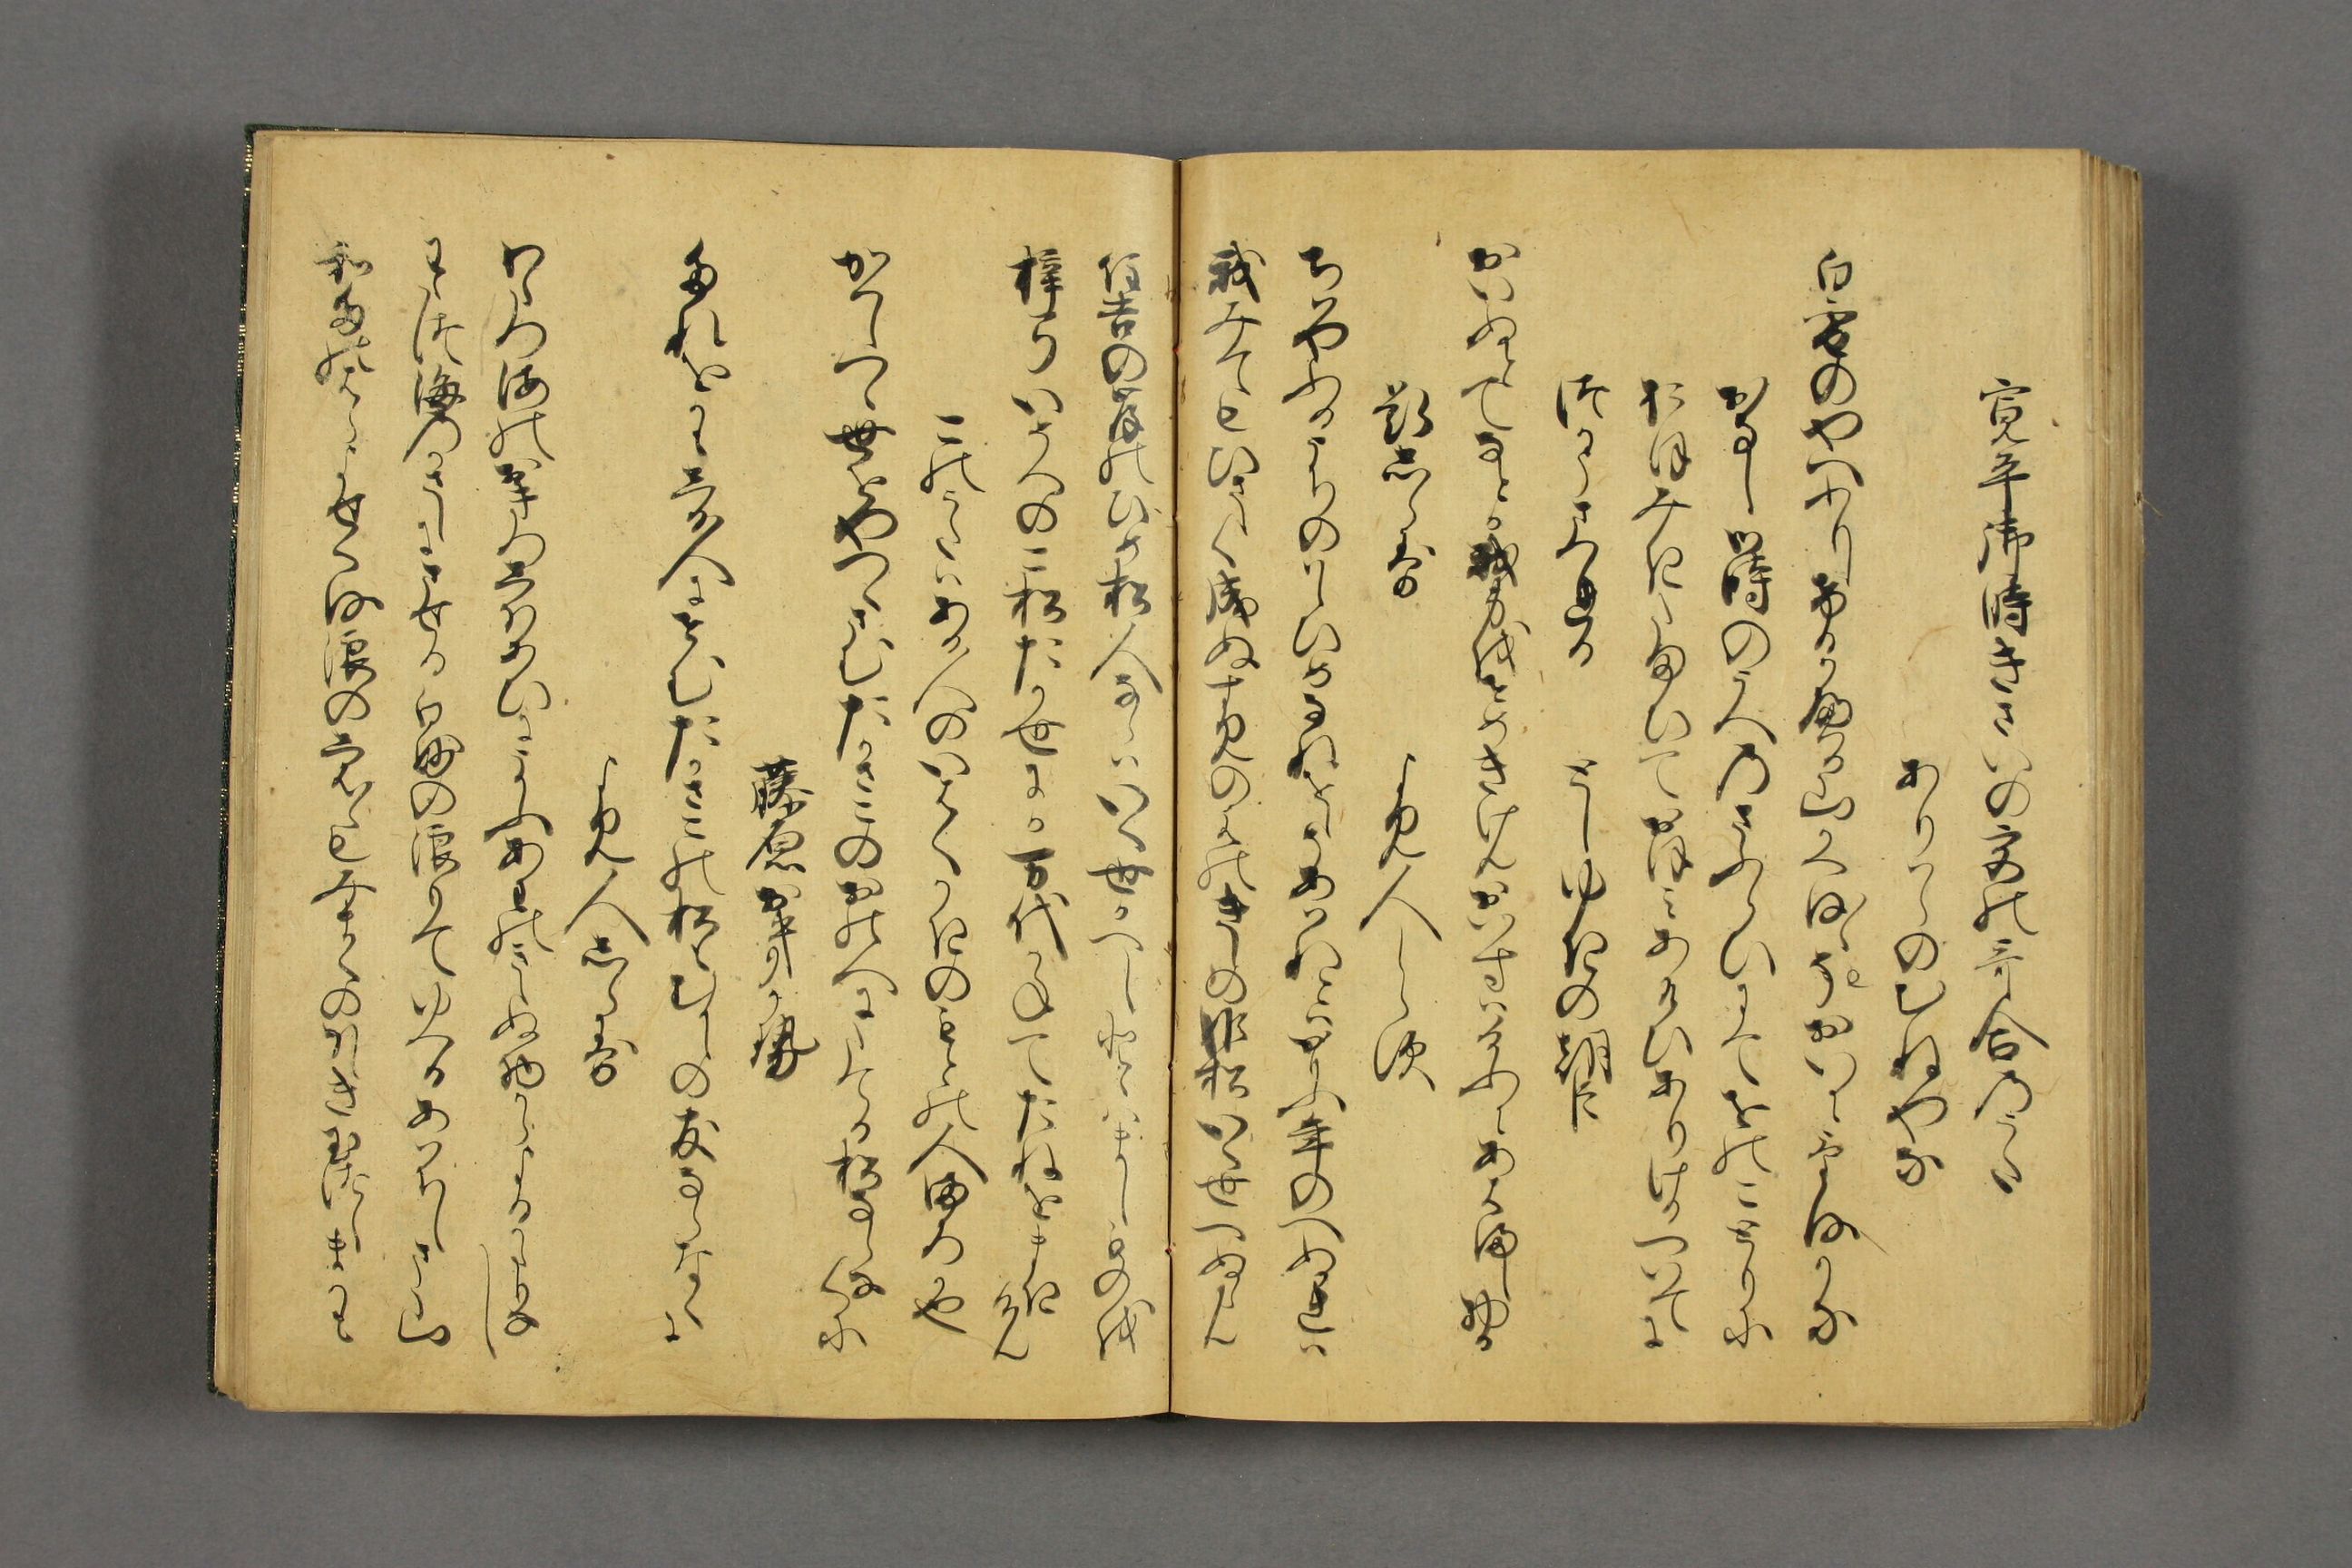 寛平御時きさいの宮の哥合のうた
ありはらのむねやな
白雪のやへふりしけるかへる山かへる/\もおいにけるかな
おなし時のうへのさふらひにてをのこともに
おほみきたまひておほみあそひありけるついてに
つかうまつれる　としゆきの朝臣
おいぬとてなとか我身をせめきけんおいすはけふにあはまし物か
題しらす　よみ人しらす
ちはやふるうちのはしもりなれをしそあはれとはおもふ年のへぬれは
我みてもひさしく成ぬすみのえのきしの姫松いくよへぬらん
住吉の岸のひめ松人ならはいくよかへしととはましものを
梓弓いそへの小松たか世にか万代かねてたねをまきけん
この哥はある人のいはくかきのもとの人まろか也
かくしつゝ世をやつくさむたかさこのおのへにたてる松ならなくに
藤原おきかせ
たれをかもしる人にせむたかさこの松もむかしの友ならなくに
よみ人しらす
わたつ海のおきつしほあひにうかふあはのきえぬものからよるかたもなし
わたつ海のかさしにさせる白妙の浪もてゆへるあはちしま山
和たの原よせくる浪のしは/\もみまくのほしき玉津しまかも